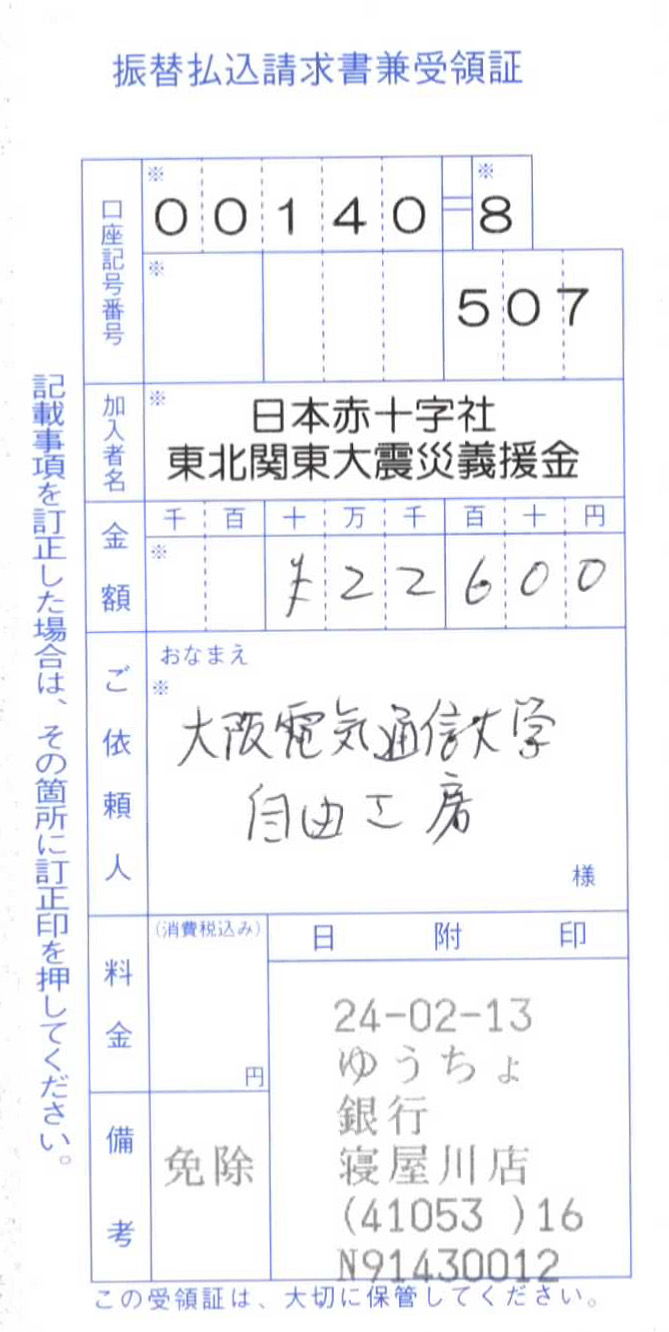 振替払込請求書兼受領証
口座記号番号
※ ※
00140=8
※
507
加入者名
※
日本赤十字社
東北関東大震災義援金
金額
千 百 十 万 千 百 十 円
※
¥22600
ご依頼人
おなまえ
※
大阪電気通信大学
自由工房
様
料金
(消費税込み)
円
日附印
24-02-13
ゆうちょ
銀行
寝屋川店
(41053 )16
N91430012
備考
免除
この受領証は、大切に保管してください。
記載事項を訂正した場合は、その箇所に訂正印を押してください。